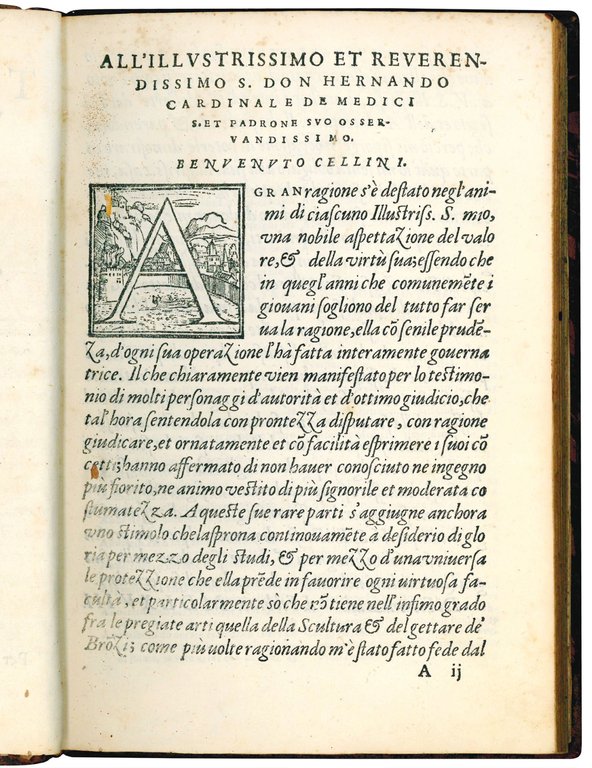 ALL'ILLVSTRISSIMO ET REVEREN-
DISSIMO S. DON HERNANDO
CARDINALE DE MEDICI
S. ET PADRONE SVO OSSER-
VANDISSIMO.
BENVENVTO CELLINI.
A GRAN ragione s'è destato negl'ani
mi di ciascuno Illustriss. S. mio,
vna nobile aspettazione del valo
re, & della virtù sua; essendo che
in quegl'anni che comunemēte i
giouani sogliono del tutto far ser
ua la ragione, ella cō senile prudē-
za, d'ogni sua operazione l'hà fatta interamente gouerna
trice. Il che chiaramente vien manifestato per lo testimo-
nio di molti personaggi d'autorità et d'ottimo giudicio, che
tal'hora sentendola con prontezza disputare, con ragione
giudicare, et ornatamente et cō facilità esprimere i suoi cō
cetti; hanno affermato di non hauer conosciuto ne ingegno
più fiorito, ne animo vestito di più signorile et moderata co
stumatezza. A queste sue rare parti s'aggiugne anchora
vno stimolo che la sprona continouamēte à desiderio di glo
ria per mezzo degli studi, & per mezzo d'una vniuersa
le protezzione che ella prēde in fauorire ogni virtuosa fa-
cultà, et particolarmente so che nō tiene nell'infimo grado
fra le pregiate arti quella della Scultura & del gettare de'
Brōzi; come più uolte ragionando m'è stato fatto fede dal
A ij